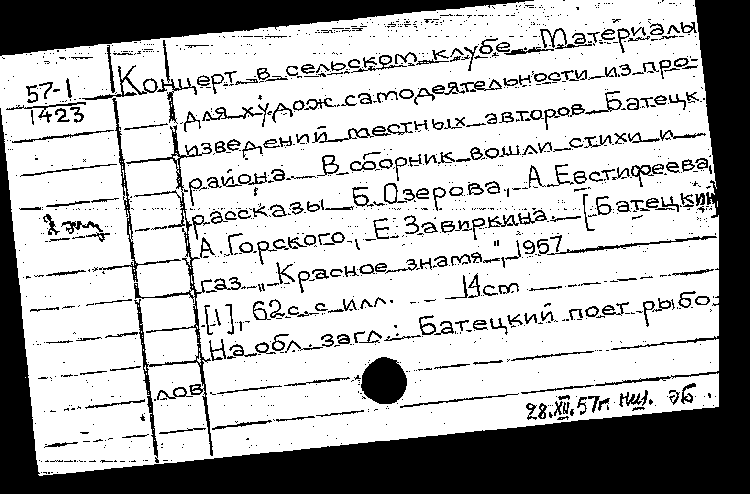 57-1
1423
2 экз
Концерт в сельском клубе. Материалы
для худож самодеятельности из про-
изведений местных авторов Батецк.
района. В сборник вошли стихи и
рассказы Б. Озерова, А. Евстифеева,
А. Горского, Е. Завиркина. [Батецкий]
газ. „Красное знамя", 1957.
[1], 62с. с илл. 14cm
На обл. загл.: Батецкий поет рыбо-
лов
28.XII.57г. эб.